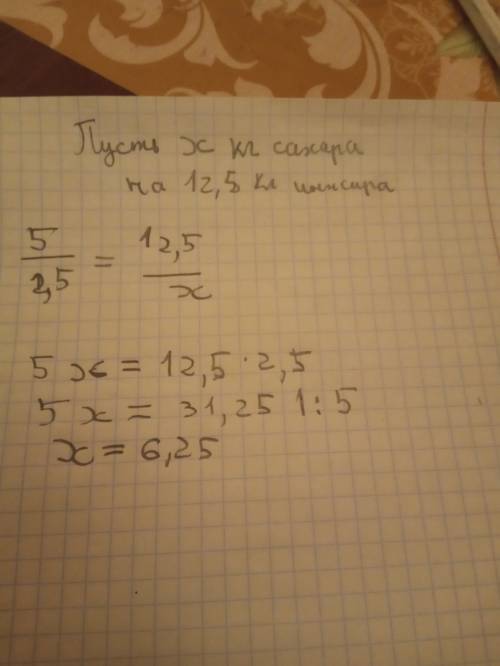 Пусть x кг сахара
на 12,5 кг инжира
5/2,5 = 12,5/x
5x = 12,5 · 2,5
5x = 31,25 | : 5
x = 6,25